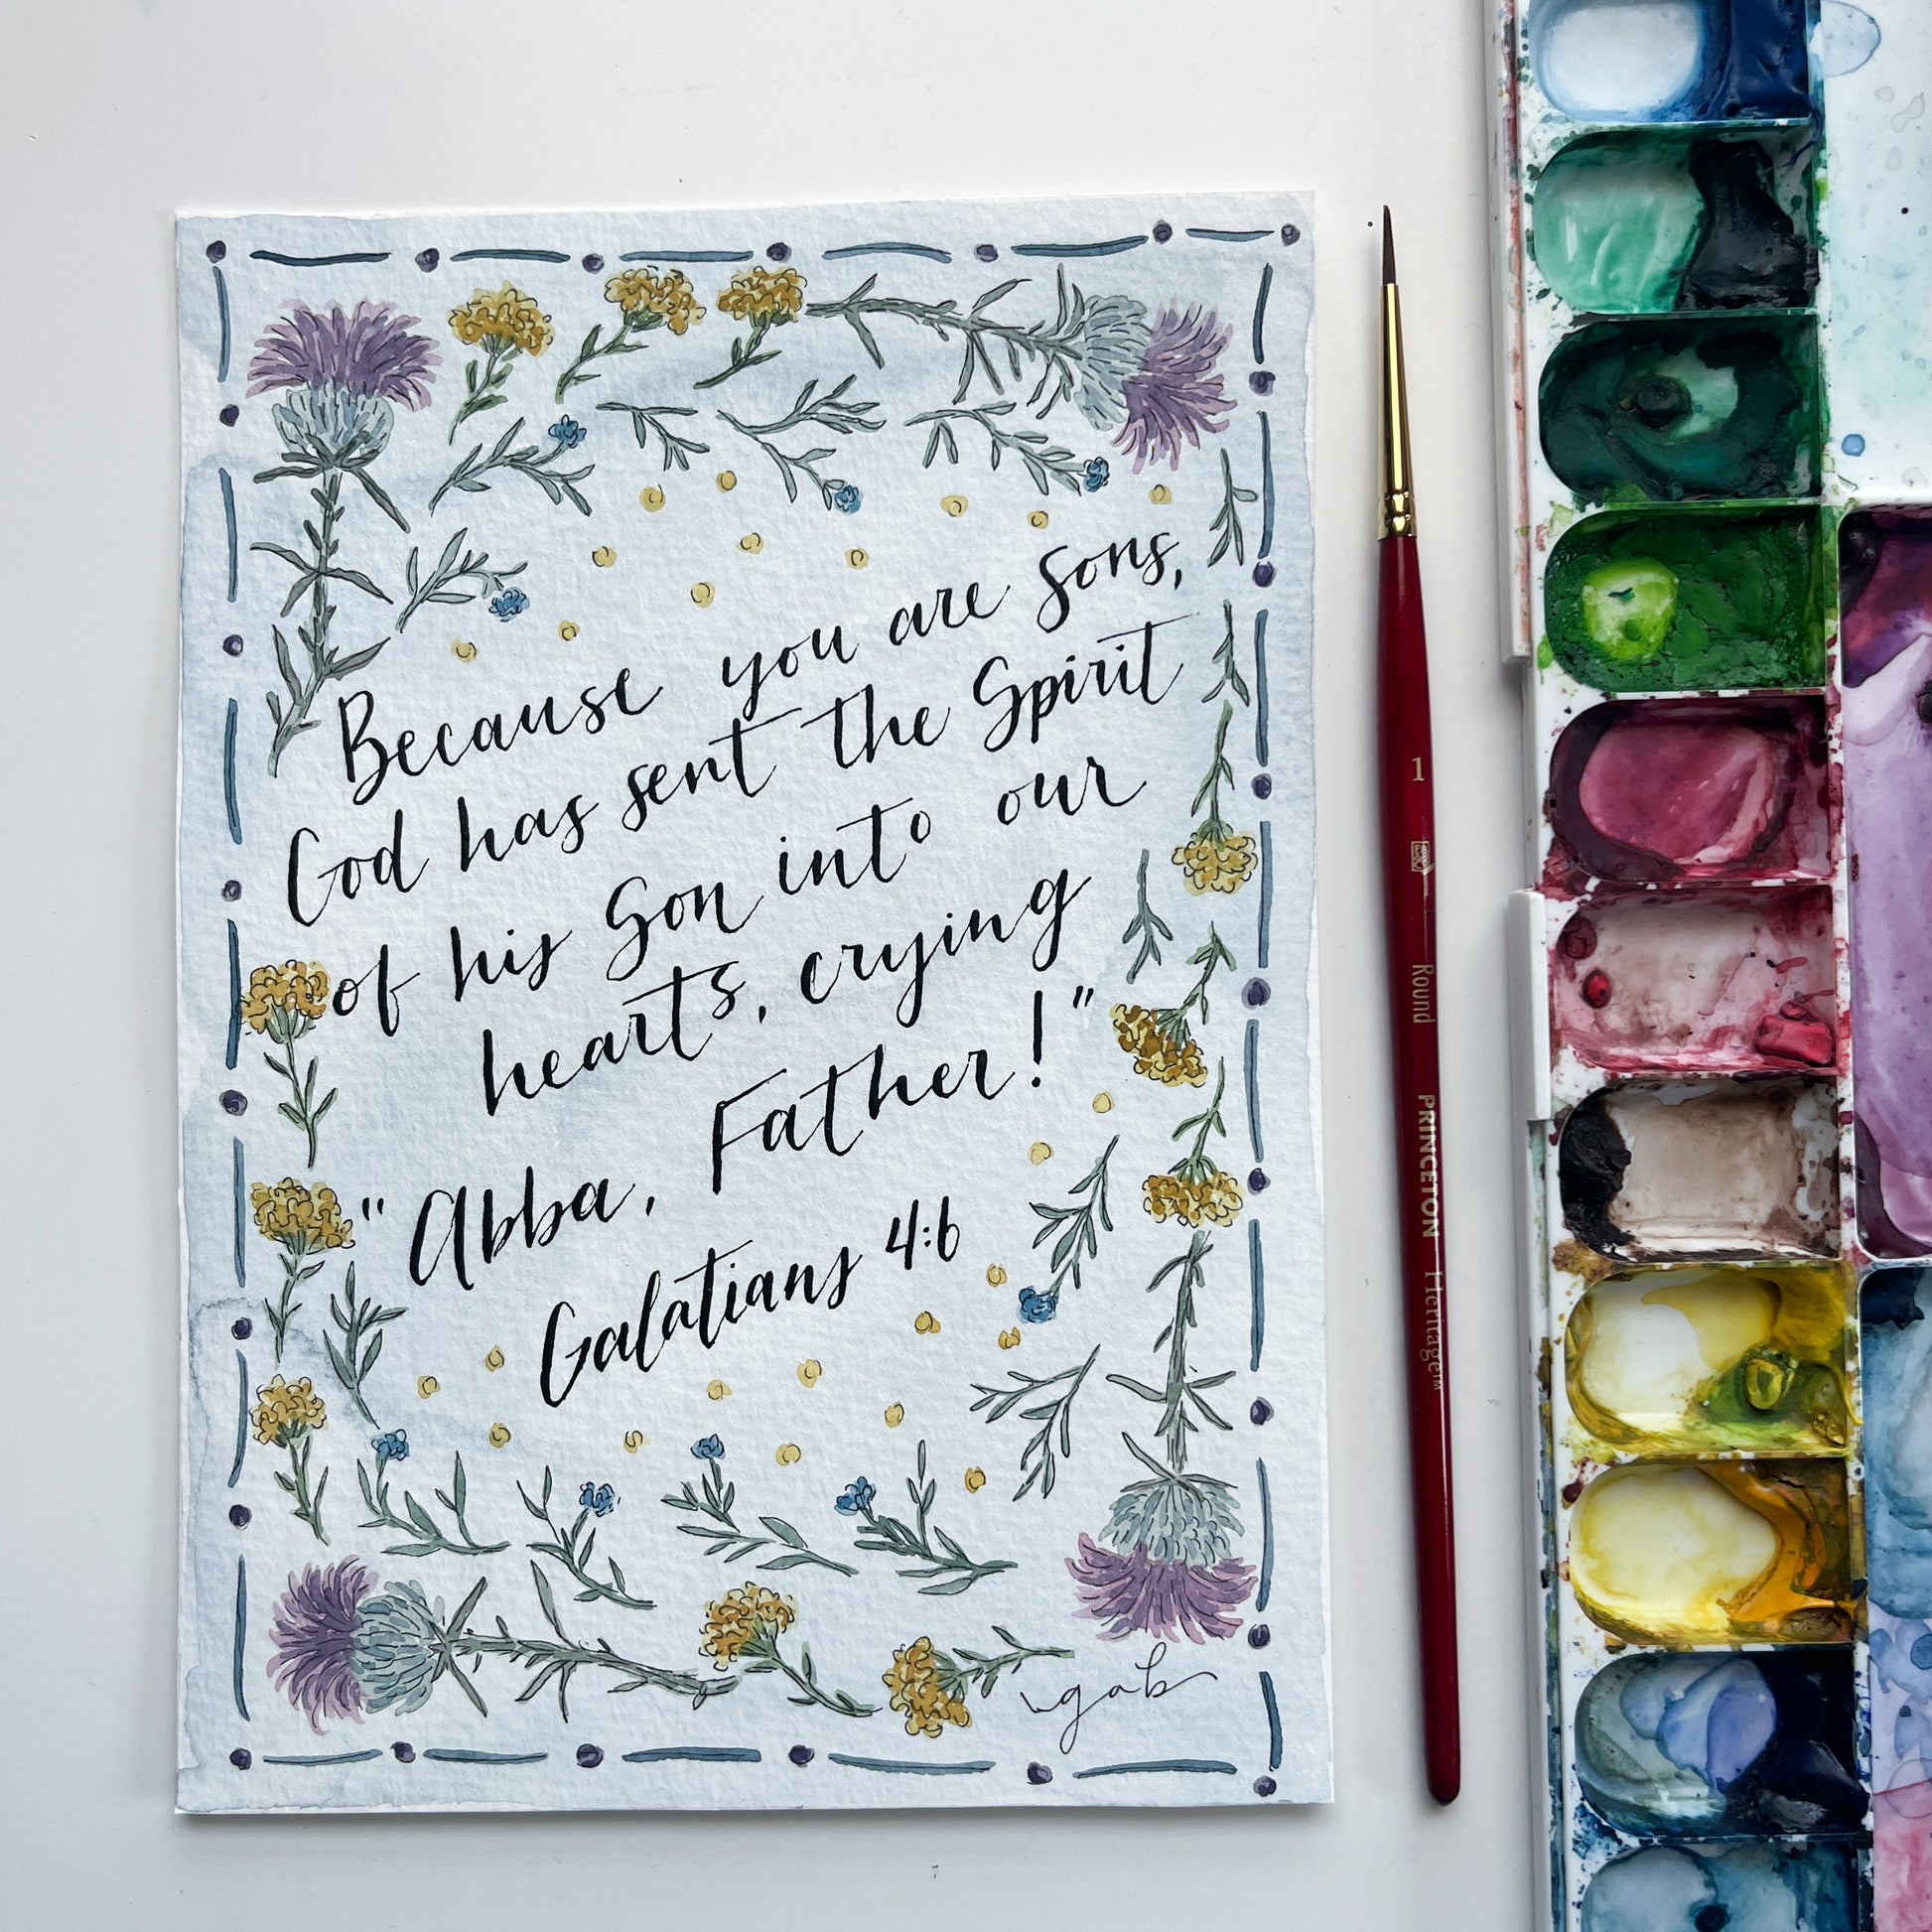 Because you are sons,
God has sent the Spirit
of his Son into our
hearts, crying
"Abba, Father!"
Galatians 4:6
gab
1
Round
PRINCETON
Heritage™